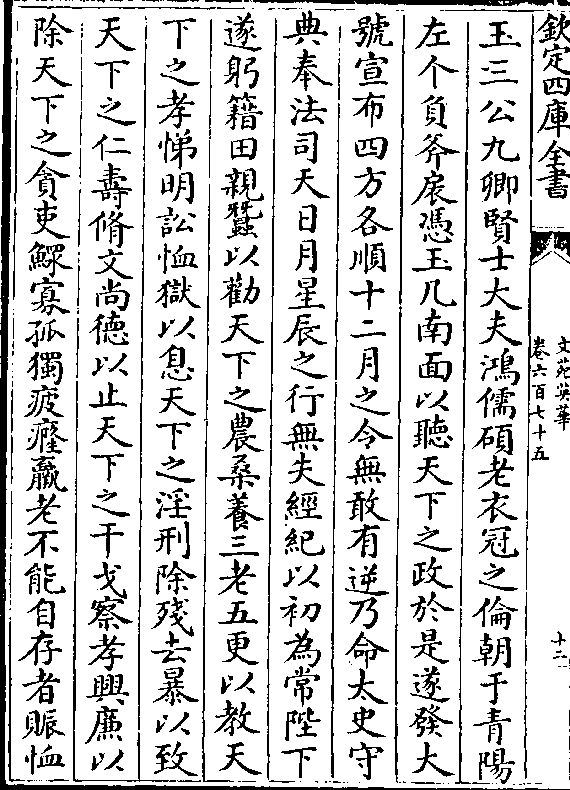 欽定四庫全書
文苑英華
卷六百七十五
十二
玉三公九卿賢士大夫鴻儒碩老衣冠之倫朝于青陽
左个負斧扆憑玉几南面以聽天下之政於是遂發大
號宣布四方各順十二月之令無敢有逆乃命太史守
典奉法司天日月星辰之行無失經紀以初為常陛下
遂躬籍田親蠶以勸天下之農桑養三老五更以教天
下之孝悌明訟恤獄以息天下之淫刑除殘去暴以致
天下之仁壽脩文尚德以止天下之干戈察孝興廉以
除天下之貪吏鰥寡孤獨疲癃羸老不能自存者賑恤